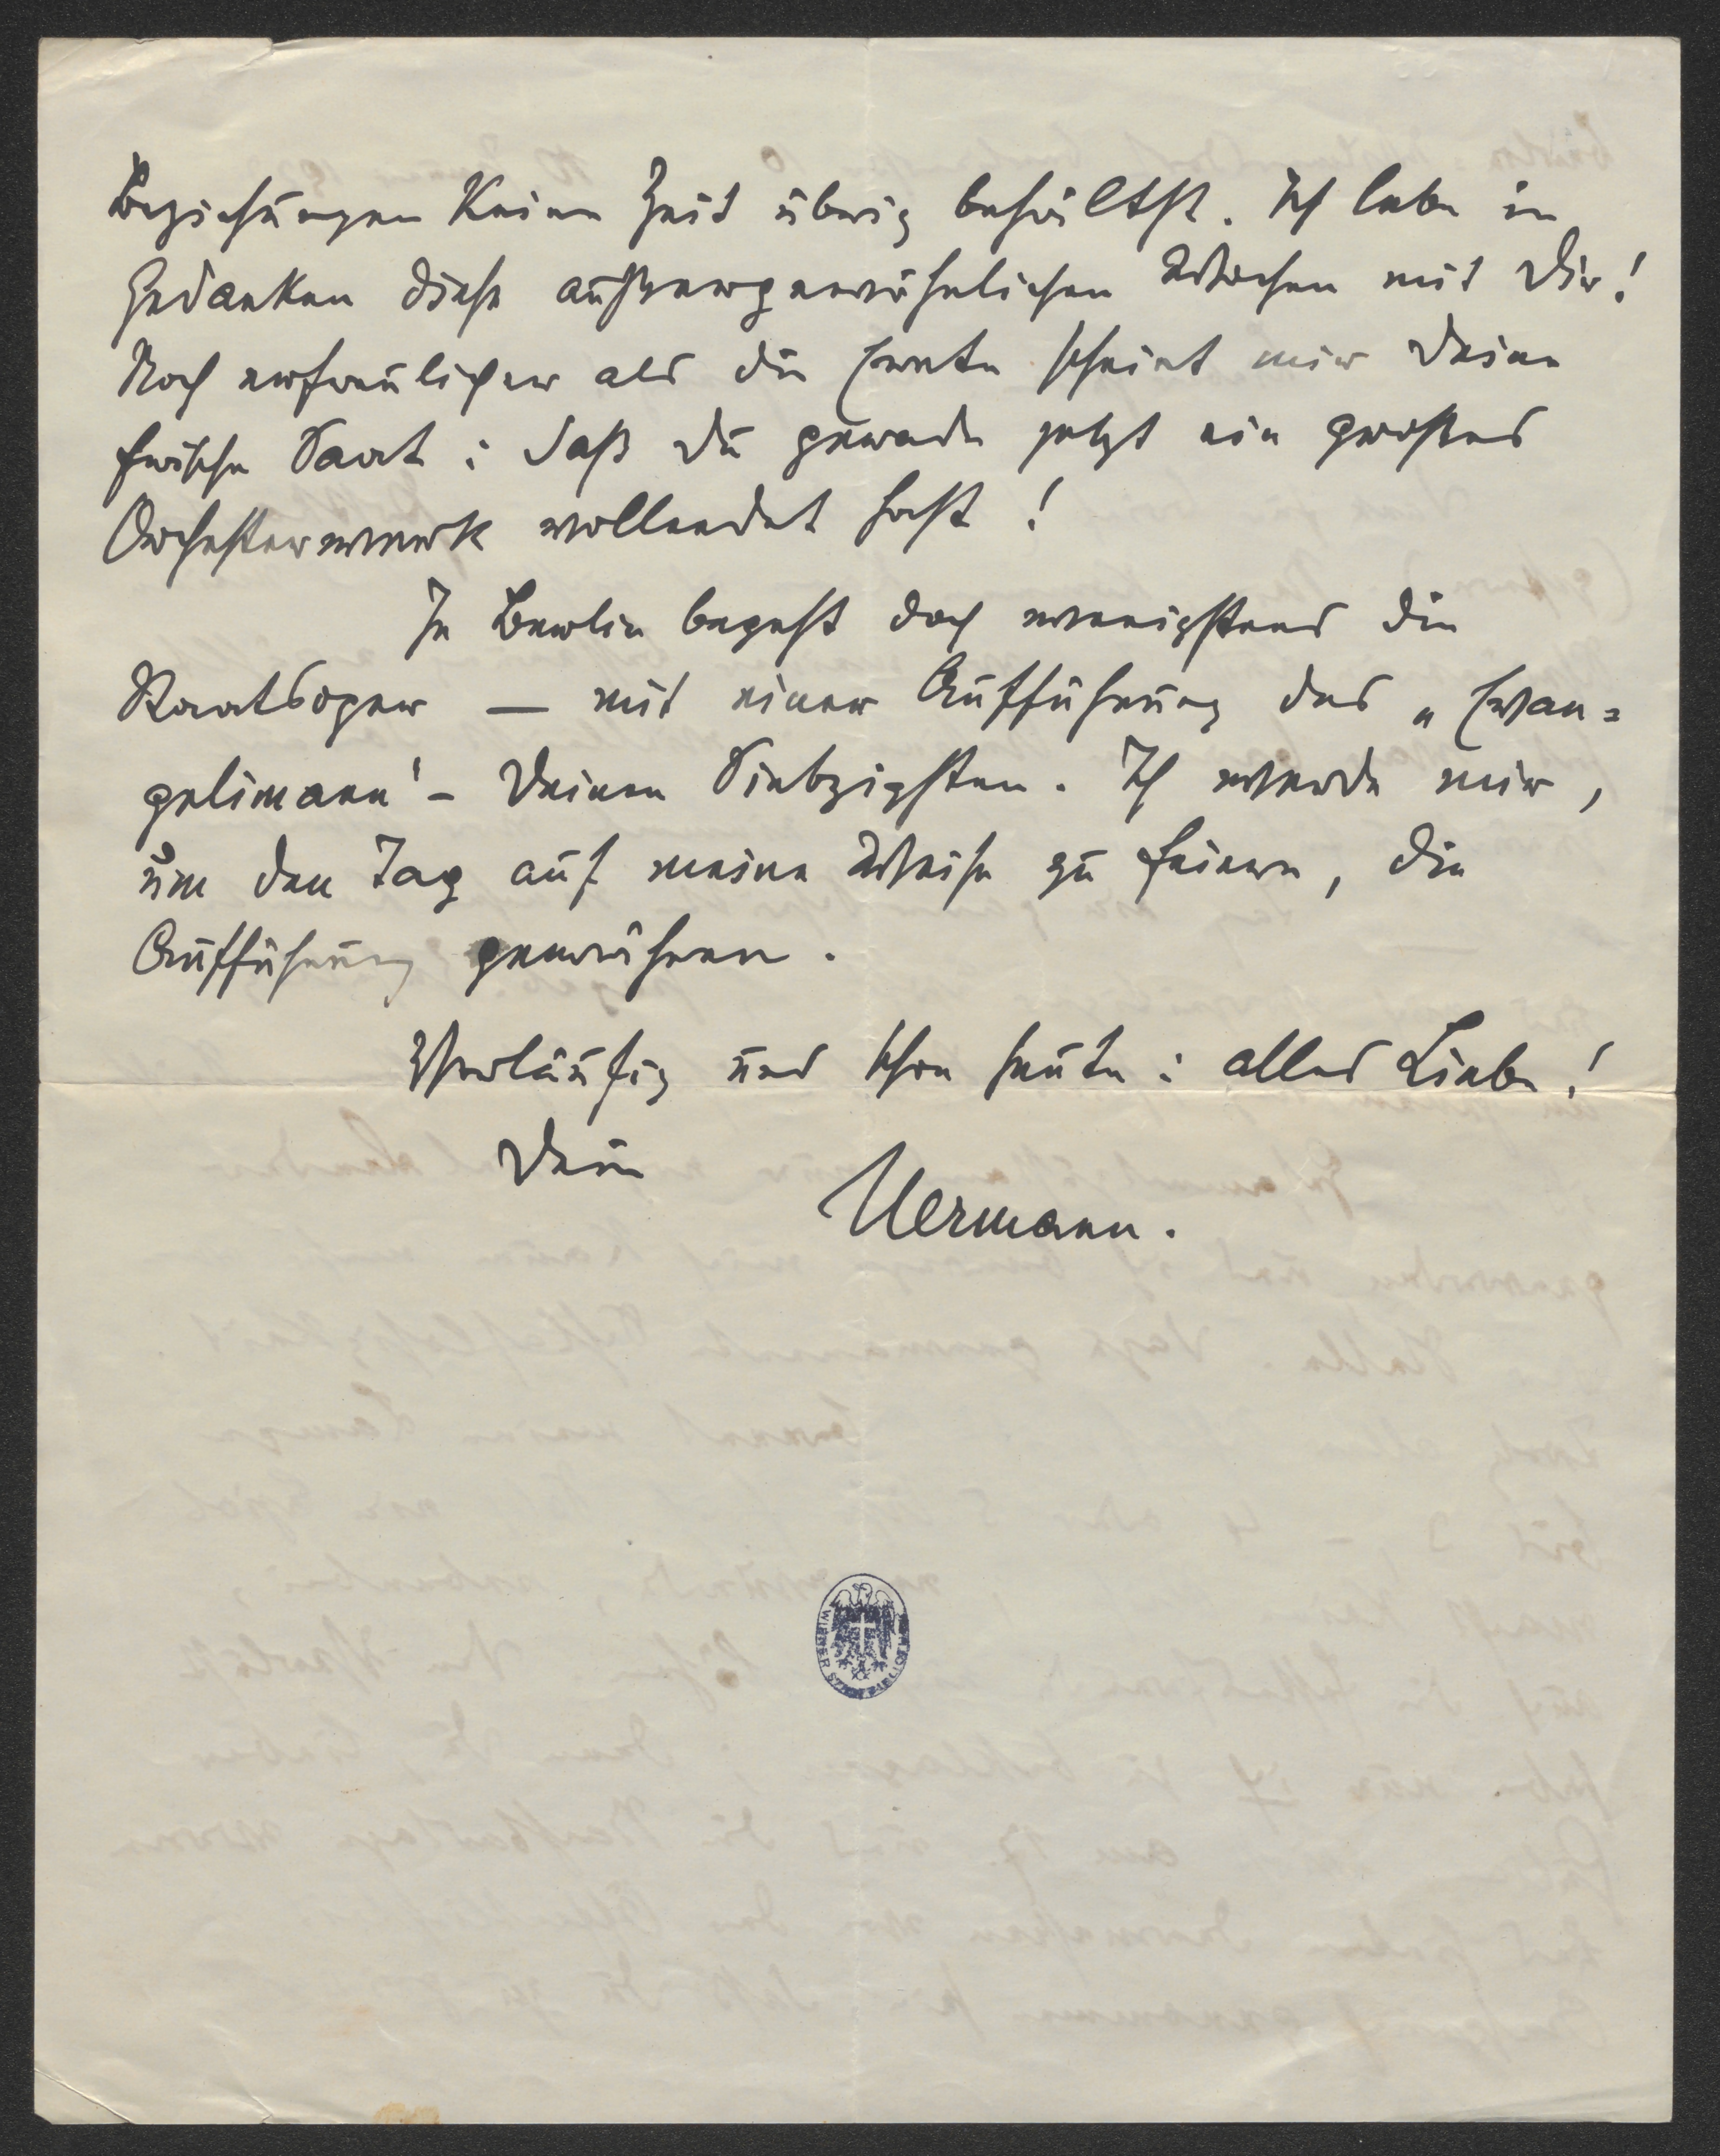 Beziehungen keine Zeit übrig behältst. Ich lebe in
Gedanken diese außergewöhnlichen Wochen mit Dir!
Noch erfreulicher als die Ernte scheint mir Deine
frische Saat: daß Du gerade jetzt ein großes
Orchesterwerk vollendet hast!
In Berlin begeht doch wenigstens die
Staatsoper — mit einer Aufführung des „Evan=
gelimann' - Deinen Siebzigsten. Ich werde mir,
um den Tag auf meine Weise zu feiern, die
Aufführung gewähren.
Vorläufig und schon heute: alles Liebe!
Dein
Hermann.
WIENER STADTBIBLIOTHEK